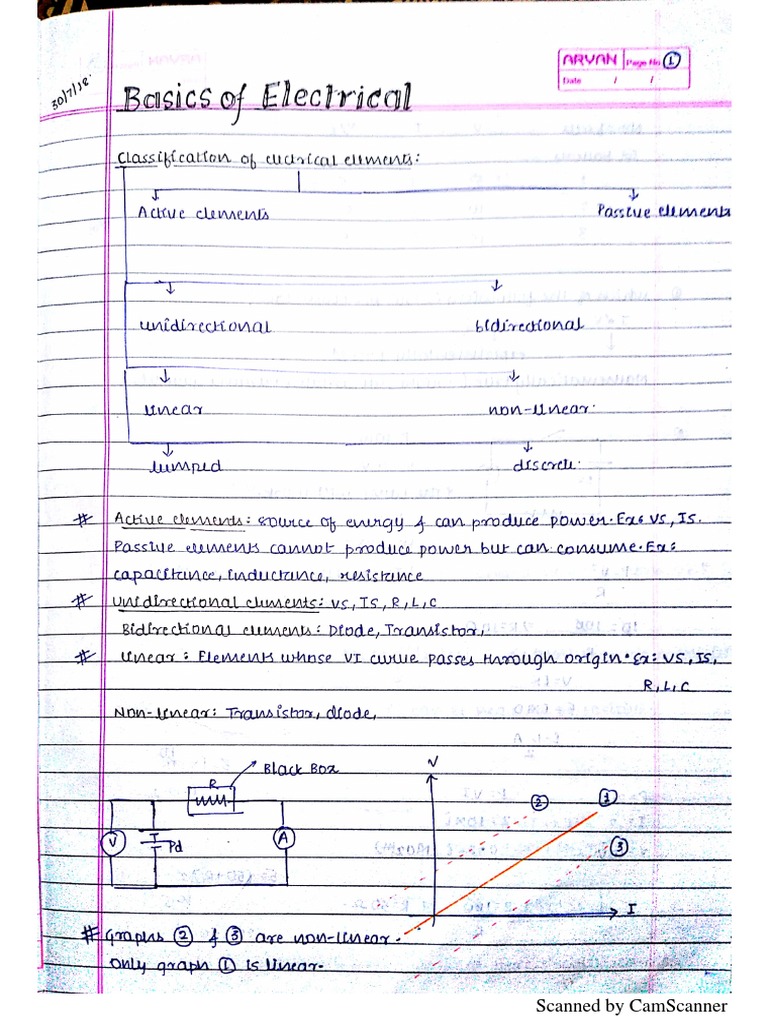 ARYAN Page No 1
Date / /
30/7/18.
Basics of Electrical
Classification of electrical elements:
Active elements Passive elements
unidirectional bidirectional
linear non-linear.
lumped discrete.
# Active elements: source of energy & can produce power. Ex: VS, IS.
Passive elements cannot produce power but can consume. Ex:
capacitance, inductance, resistance
# Unidirectional elements: VS, IS, R, L, C
Bidirectional elements: Diode, Transistor,
# Linear: Elements whose VI curve passes through origin. Ex: VS, IS,
R, L, C
Non-linear: Transistor, diode,
R Black Box
V Pd A
V
2 1
3
I
# Graphs 2 & 3 are non-linear.
Only graph 1 is linear.
Scanned by CamScanner